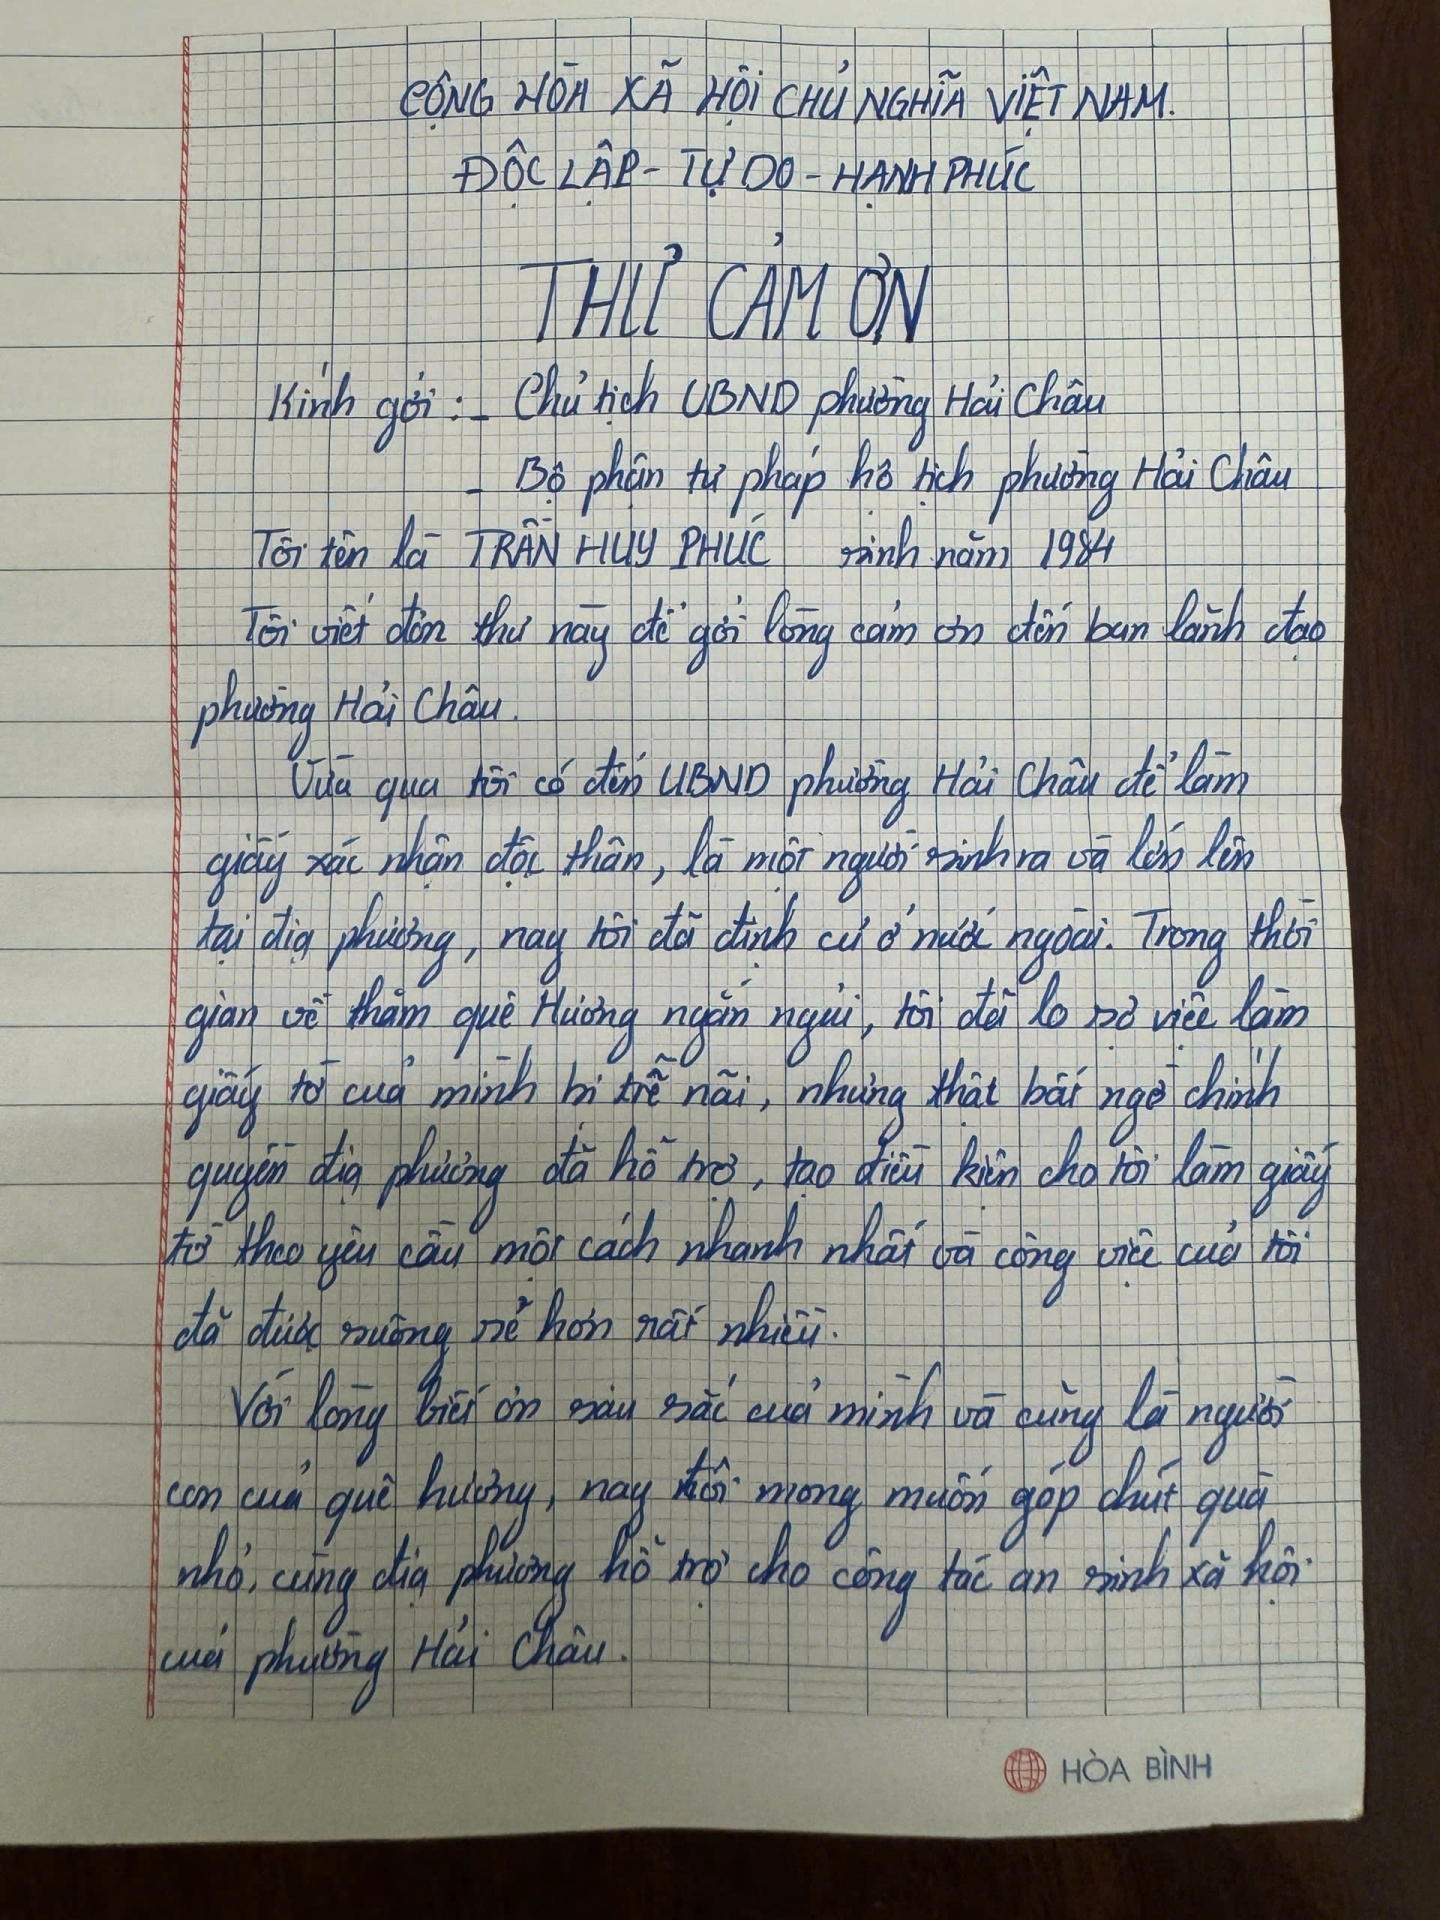 CỘNG HÒA XÃ HỘI CHỦ NGHĨA VIỆT NAM.
ĐỘC LẬP - TỰ DO - HẠNH PHÚC
THƯ CẢM ƠN
Kính gởi : - Chủ tịch UBND phường Hải Châu
- Bộ phận tư pháp hộ tịch phường Hải Châu
Tôi tên là TRẦN HUY PHÚC sinh năm 1984
Tôi viết đơn thư này để gởi lòng cảm ơn đến ban lãnh đạo
phường Hải Châu.
Vừa qua tôi có đến UBND phường Hải Châu để làm
giấy xác nhận độc thân, là một người sinh ra và lớn lên
tại địa phương, nay tôi đã định cư ở nước ngoài. Trong thời
gian về thăm quê Hương ngắn ngủi, tôi đã lo sợ việc làm
giấy tờ của mình bị trễ nãi, nhưng thật bất ngờ chính
quyền địa phương đã hỗ trợ, tạo điều kiện cho tôi làm giấy
tờ theo yêu cầu một cách nhanh nhất và công việc của tôi
đã được suông sẻ hơn rất nhiều.
Với lòng biết ơn sâu sắc của mình và cũng là người
con của quê hương, nay tôi mong muốn góp chút quà
nhỏ, cùng địa phương hỗ trợ cho công tác an sinh xã hội
của phường Hải Châu.
HÒA BÌNH